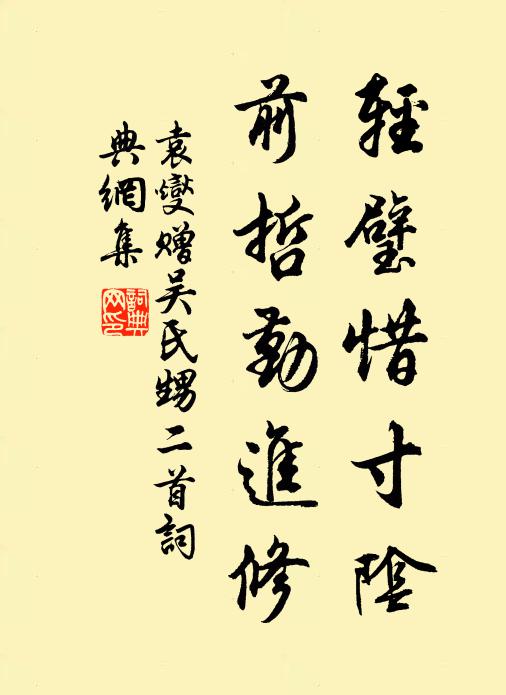 輕璧惜寸陰
前哲勤進修
袁燮贈吴氏甥二首詞
典網集
詞典
网印